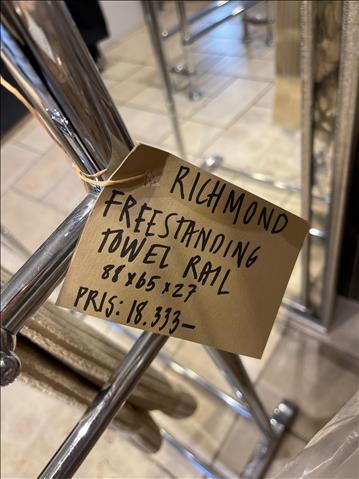 RICHMOND
FREESTANDING
TOWEL RAIL
88x65x27
PRIS: 18.333-